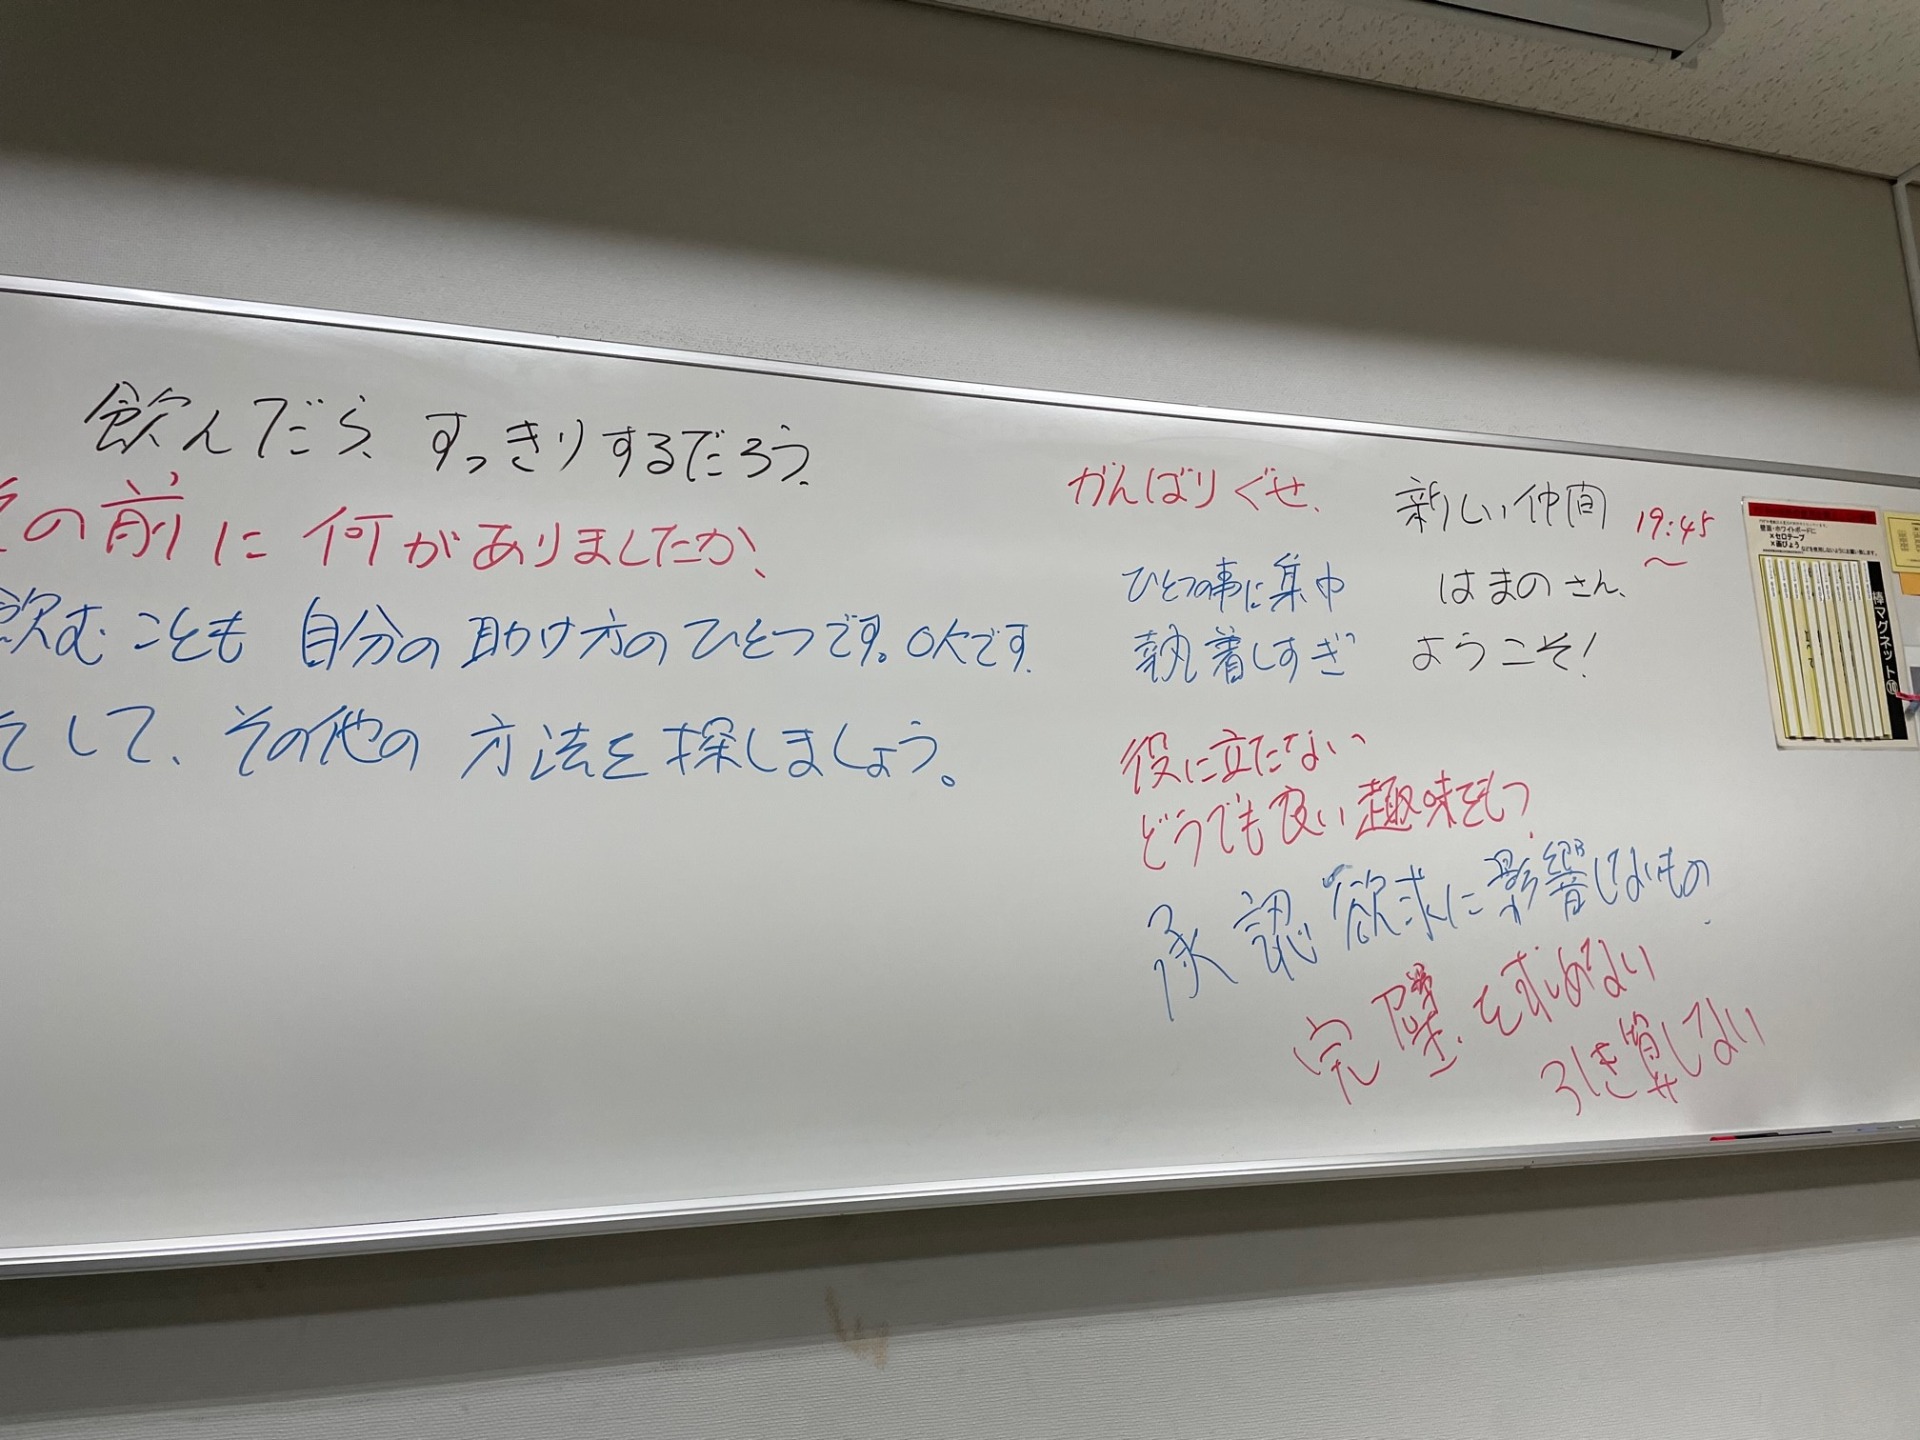 飲んだら、すっきりするだろう。
その前に何がありましたか、
飲むことも自分の助け方のひとつです。OKです。
そして、その他の方法を探しましょう。
がんばりぐせ、
ひとつの事に集中
執着しすぎ
新しい仲間
はまのさん、
ようこそ!
19:45
〜
役に立たない
どうでも良い趣味をもつ
承認欲求に影響しないもの
完璧を求めない
引き算しない
壁面・ホワイトボードに
×セロテープ
×画びょう
などを使用しないようにお願い致します。
棒マグネット⑩